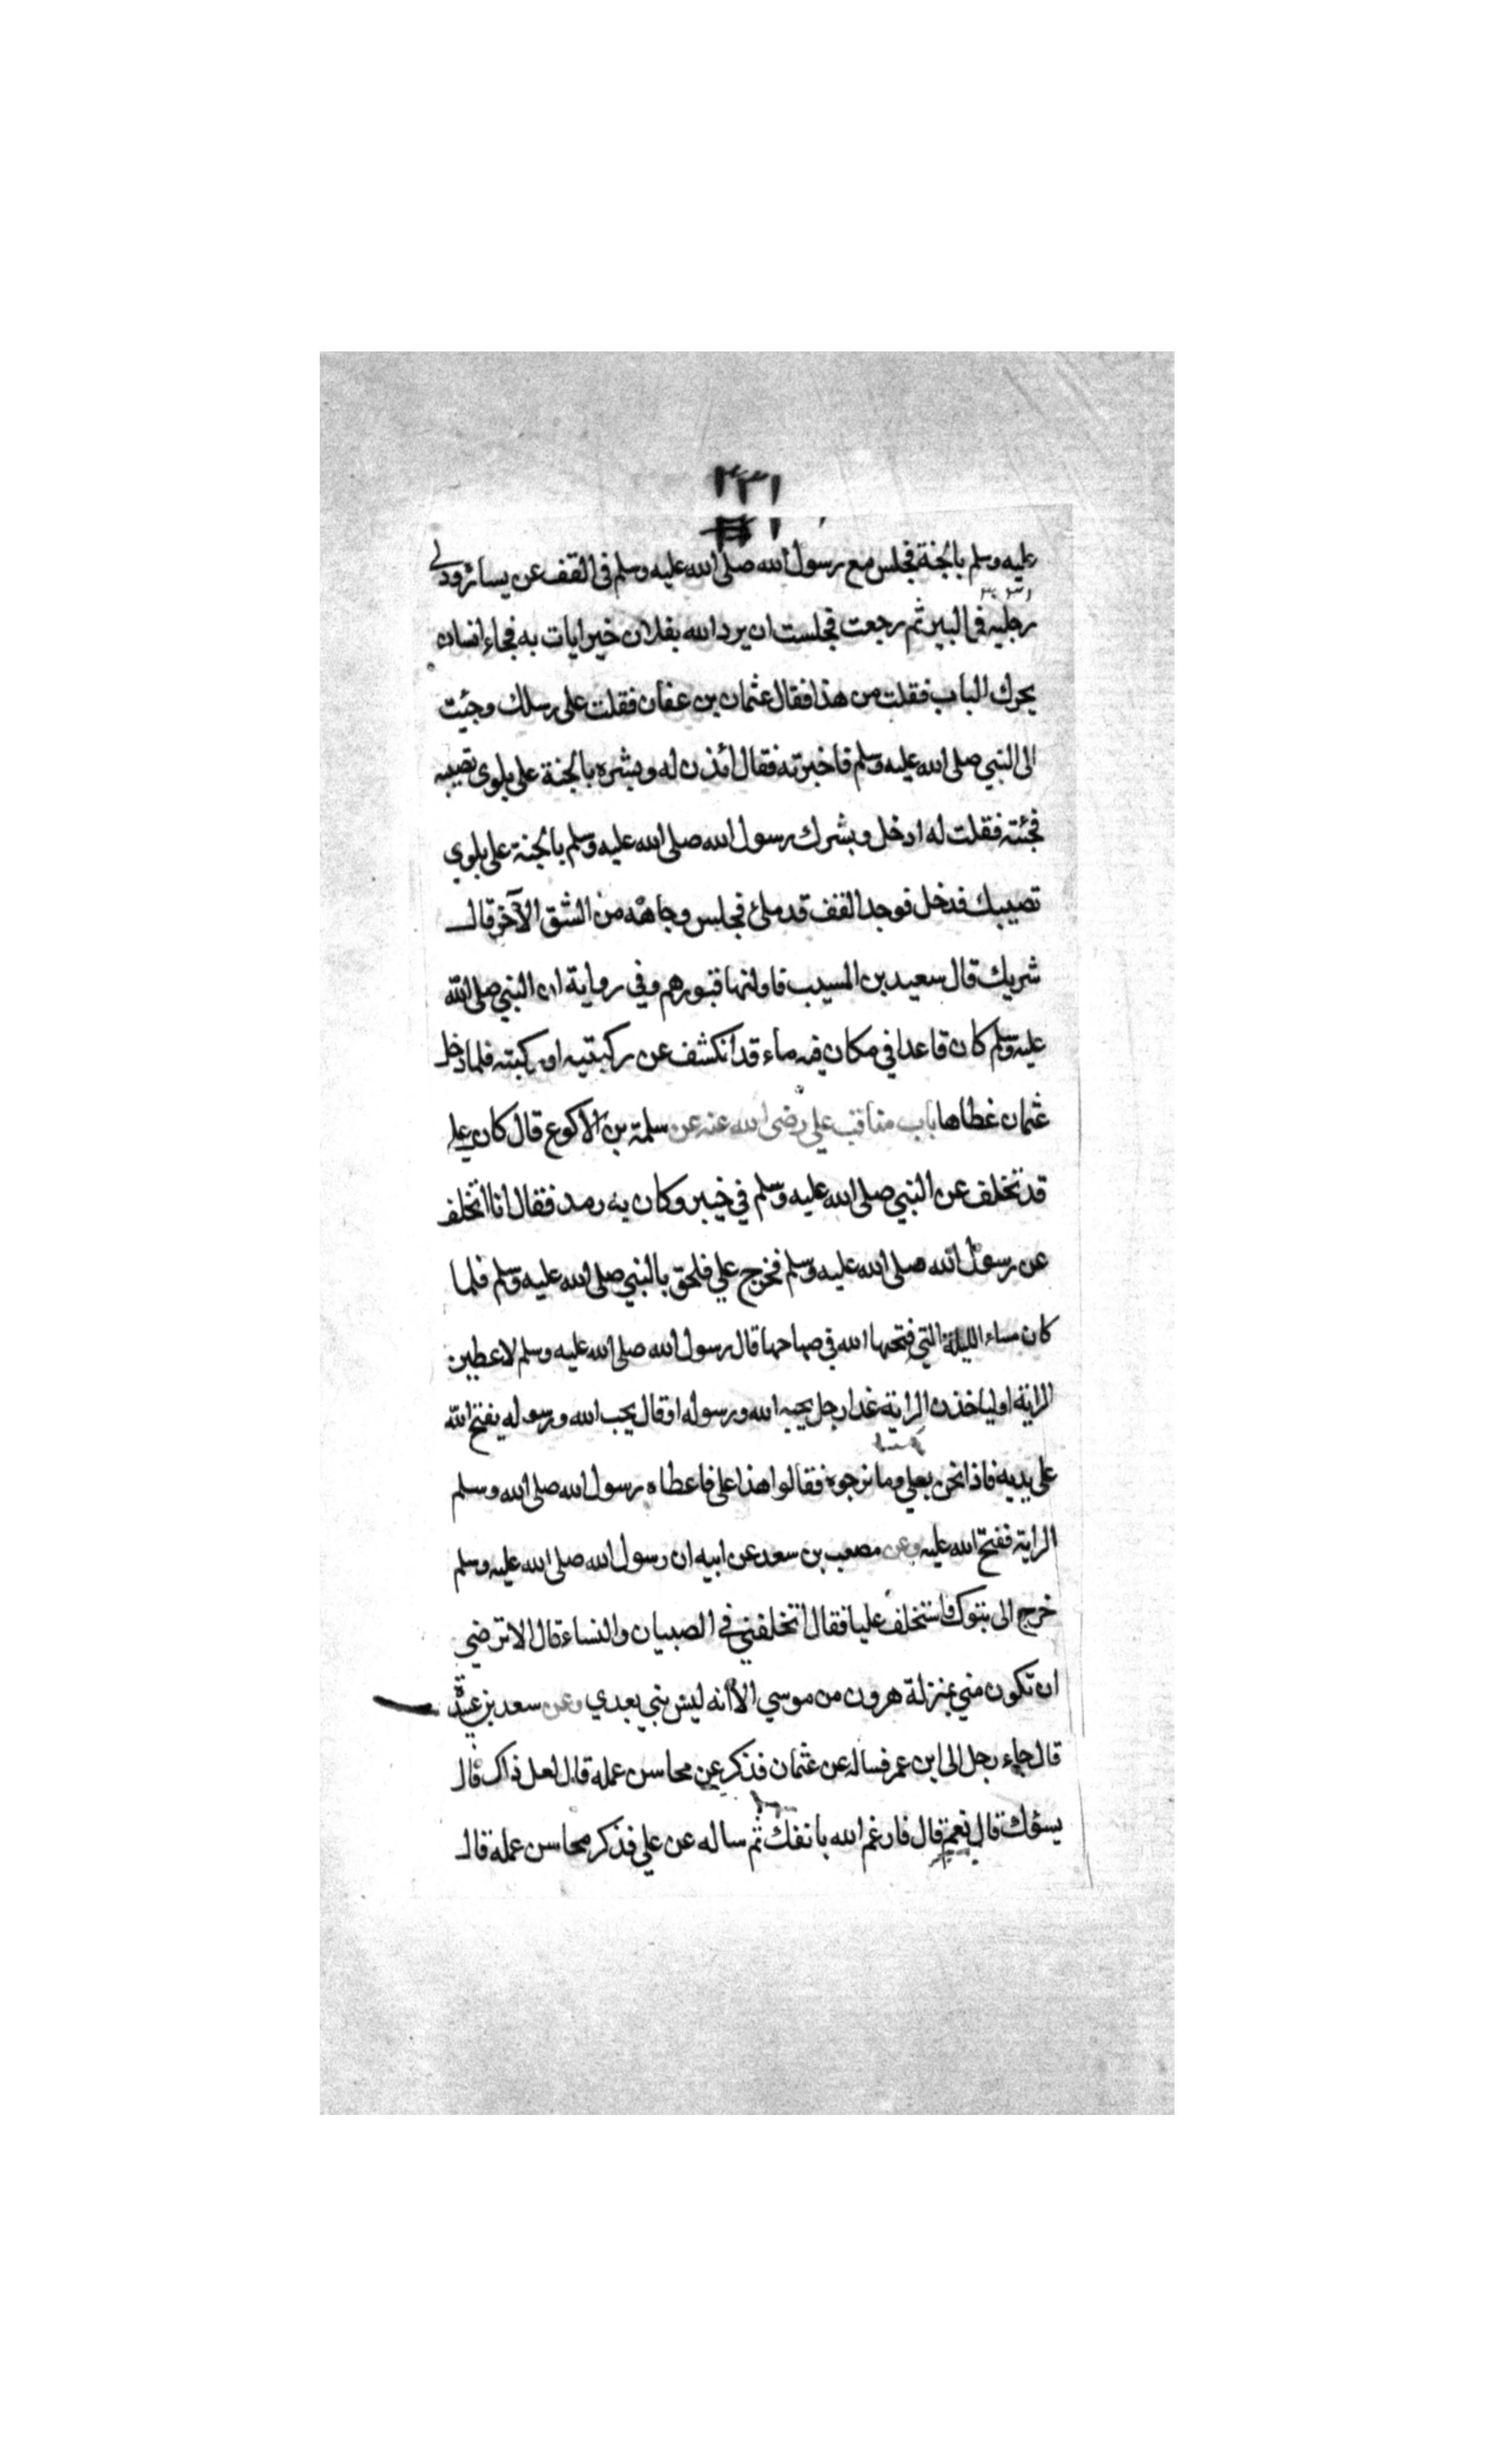 ٢٣١
عليه وسلم بالجنة فجلس مع رسول الله صلى الله عليه وسلم في القف عن يساره ودلى
رجليه في البير ثم رجعت فجلست ان يرد الله بفلان خيرا يات به فجاء انسان
يحرك الباب فقلت من هذا فقال عثمان بن عفان فقلت على رسلك وجئت
الى النبي صلى الله عليه وسلم فاخبرته فقال ائذن له وبشره بالجنة على بلوى تصيبه
فجئته فقلت له ادخل وبشرك رسول الله صلى الله عليه وسلم بالجنة على بلوي
تصيبك فدخل فوجد القف قد ملئ فجلس وجاهه من الشق الآخر قال
شريك قال سعيد بن المسيب فاولتها قبورهم وفي رواية ان النبي صلى الله
عليه وسلم كان قاعدا في مكان فيه ماء قد انكشف عن ركبتيه او ركبته فلما دخل
عثمان غطاها باب مناقب علي رضى الله عنه عن سلمة بن الاكوع قال كان علي
قد تخلف عن النبي صلى الله عليه وسلم في خيبر وكان به رمد فقال انا اتخلف
عن رسول الله صلى الله عليه وسلم فخرج علي فلحق بالنبي صلى الله عليه وسلم فلما
كان مساء الليلة التي فتحها الله في صباحها قال رسول الله صلى الله عليه وسلم لاعطين
الراية او لياخذن الراية غدا رجل يحبه الله ورسوله او قال يحب الله ورسوله يفتح الله
على يديه فاذا نحن بعلي وما نرجوه فقالوا هذا علي فاعطاه رسول الله صلى الله وسلم
الراية ففتح الله عليه وعن مصعب بن سعد عن ابيه ان رسول الله صلى الله عليه وسلم
خرج الى تبوك فاستخلف عليا فقال اتخلفني في الصبيان والنساء قال الا ترضي
ان تكون مني بمنزلة هرون من موسي الا انه ليس نبي بعدي وعن سعد بن عبيدة
قال جاء رجل الى ابن عمر فساله عن عثمان فذكر عن محاسن عمله قال لعل ذاك قال
يسؤك قال نعم قال فارغم الله بانفك ثم ساله عن علي فذكر محاسن عمله قال